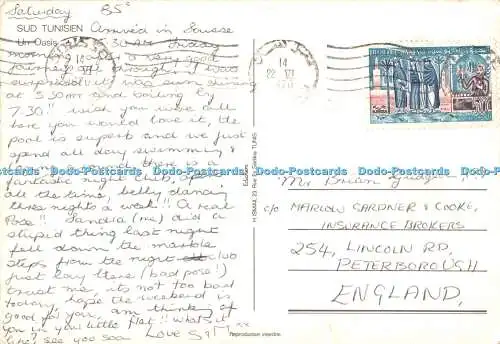 Saturday 85°
SUD TUNISIEN Arrived in Sousse
Un Oasis 3.30 AM Friday
morning after a very good
journey all through, I was
surprised it was dawning
at 3.30 AM and boiling by
7.30. wish you were all
here you would love it, the
pool is superb and we just
spend all day swimming &
there is a
fantastic night club, open
all the time, belly dancing
three nights a week!! A real
Pose!! Sandra (me) did a
stupid thing last night
fell down the marble
steps from the night club
just lay there (bad pose!)
trust me its not too bad
today, hope the weekend is
good for you, am thinking of
you in your little flat!! what's it
like? see you soon Love S. M xx
14
VI
14
22 VI
Editeurs
H. ISMAIL 23, Rue Es-Sadikia TUNIS
Mr Brian Judge
c/o MARLOW GARDNER & COOKE,
INSURANCE BROKERS
254, LINCOLN RD,
PETERBOROUGH
ENGLAND,
Reproduction interdite.
Dodo-Postcards Dodo-Postcards Dodo-Postcards Dodo-Postcards